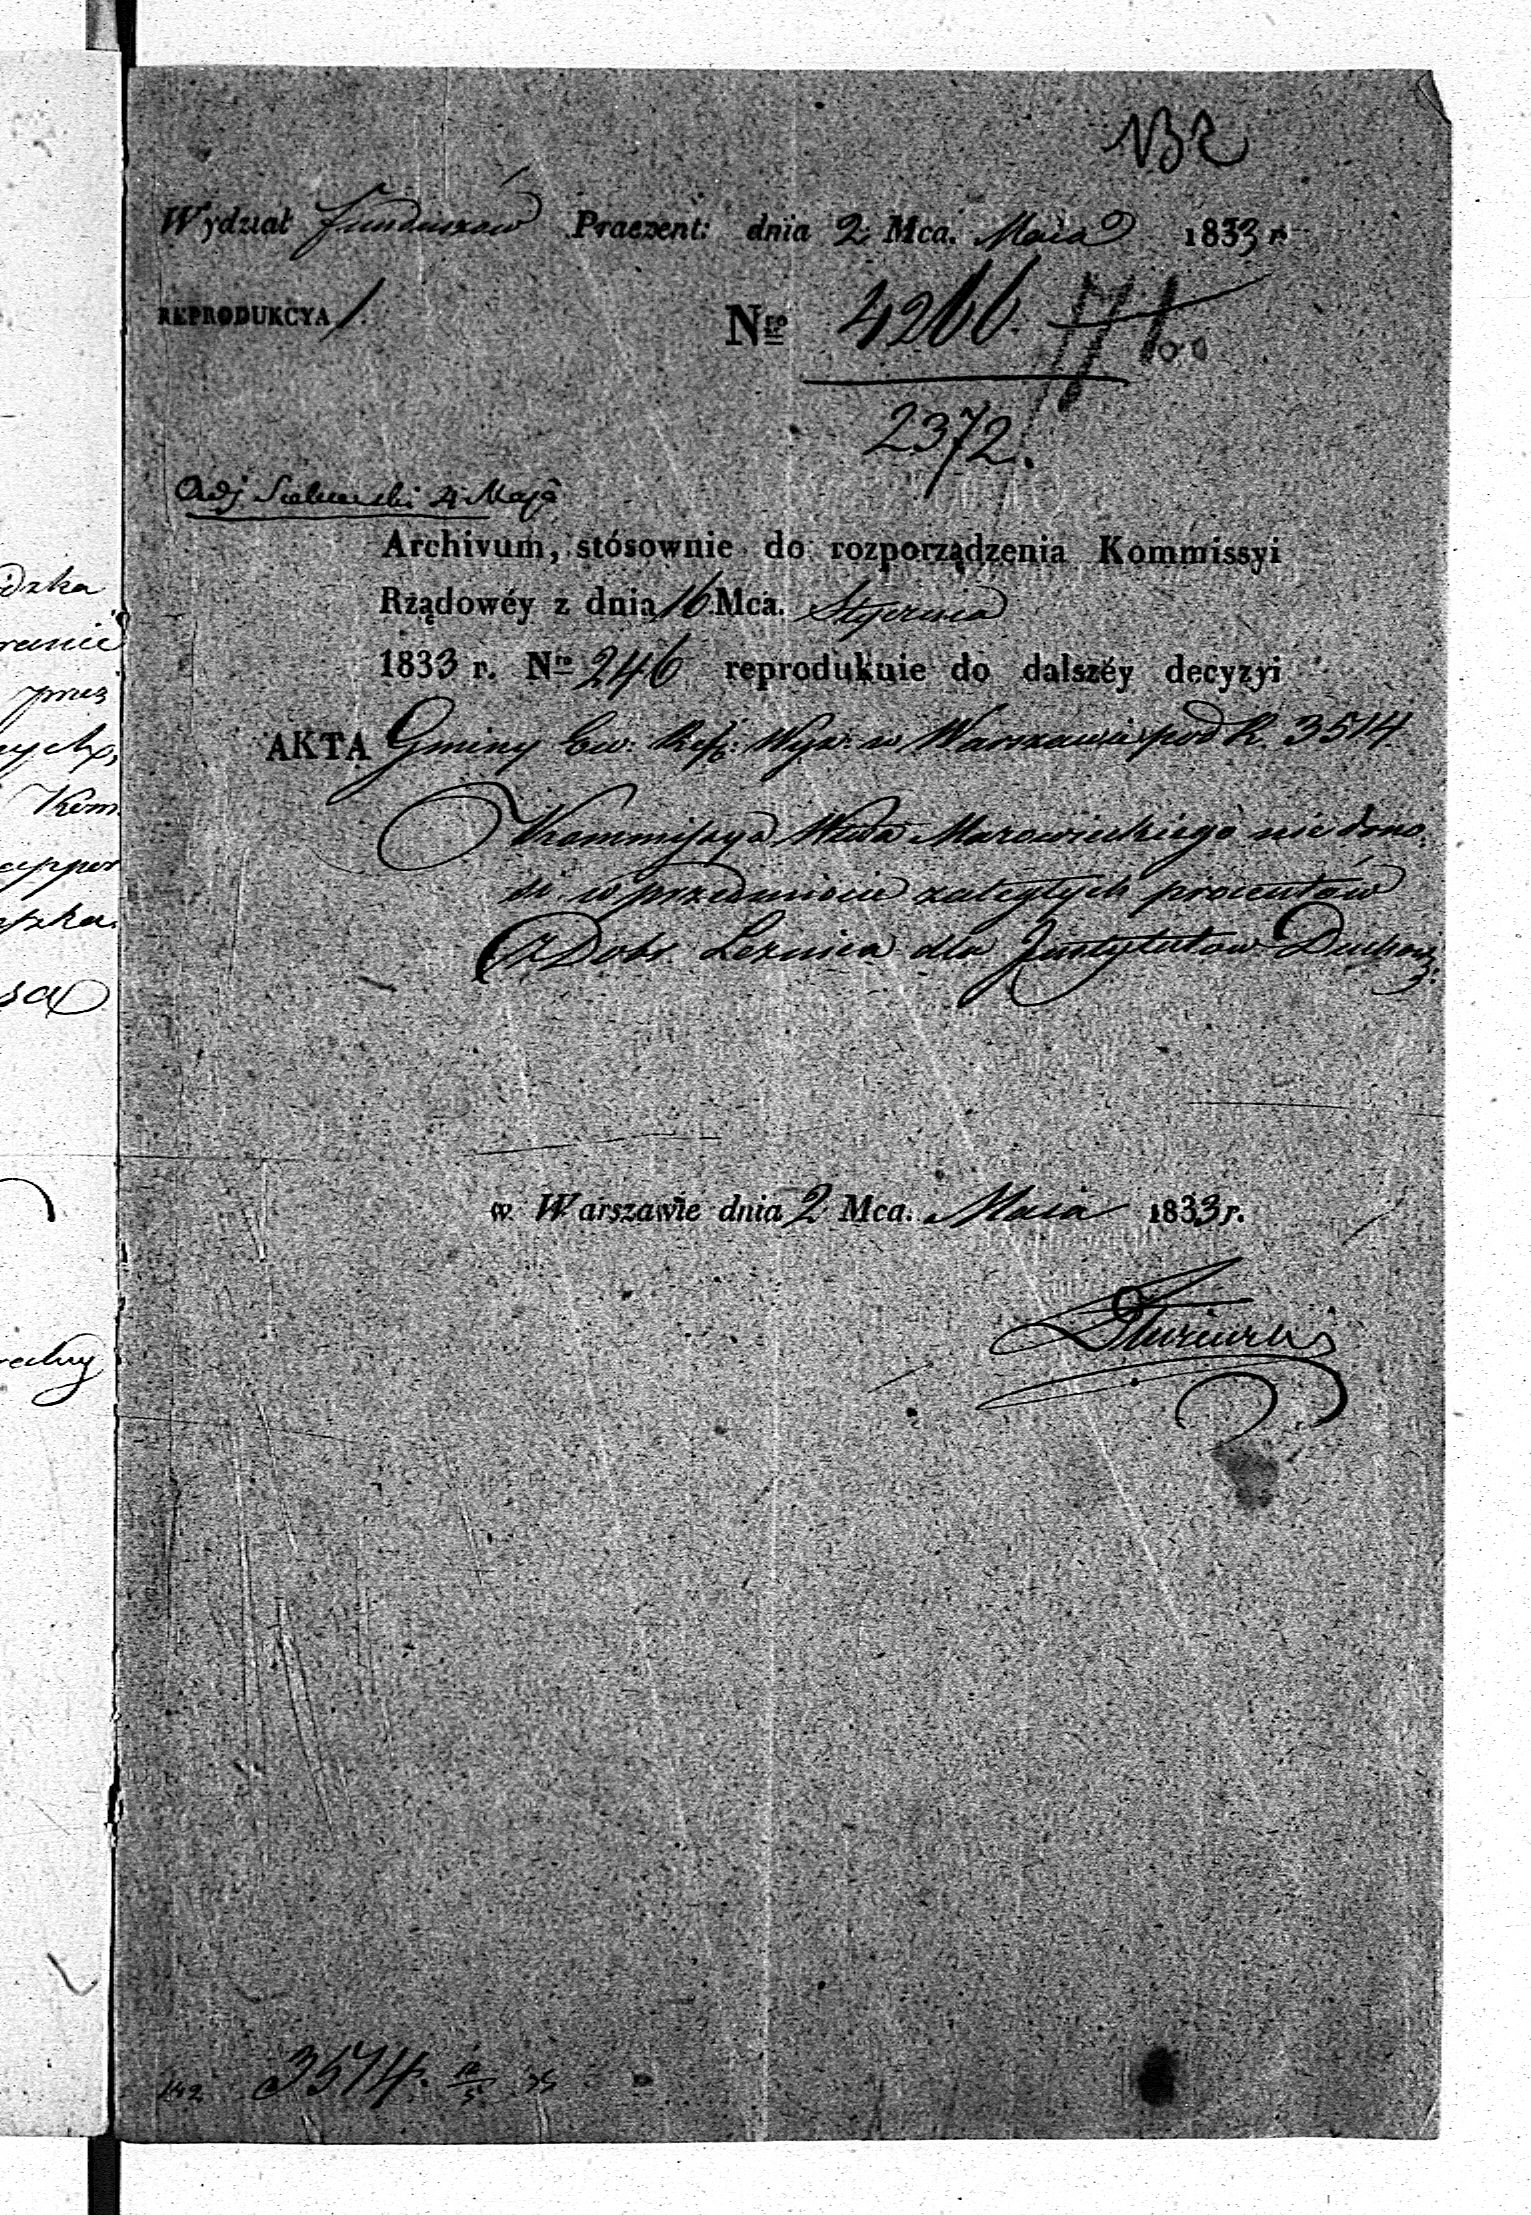 132
Wydział Funduszów Praezent: dnia 2 Mca. Maia 1833 r.
REPRODUKCYA 1
Nro 4266.
2372.
Adj. 4 Maja
Archivum, stósownie do rozporządzenia Kommissyi
Rządowéy z dnia 16 Mca. Stycznia
1833 r. Nro 246 reprodukuie do dalszéy decyzyi
AKTA Gminy Ew: Ref: Wyz: w Warszawie pod R. 3514
Kommissya Wdwa Mazowieckiego nie dono-
si w przedmiocie zaległych procentów
z Dobr Leznica dla Instytutow Duchow:
w Warszawie dnia 2 Mca. Maia 1833 r.
3514.
dzka
ranie
przez
ych,
Kom
appor